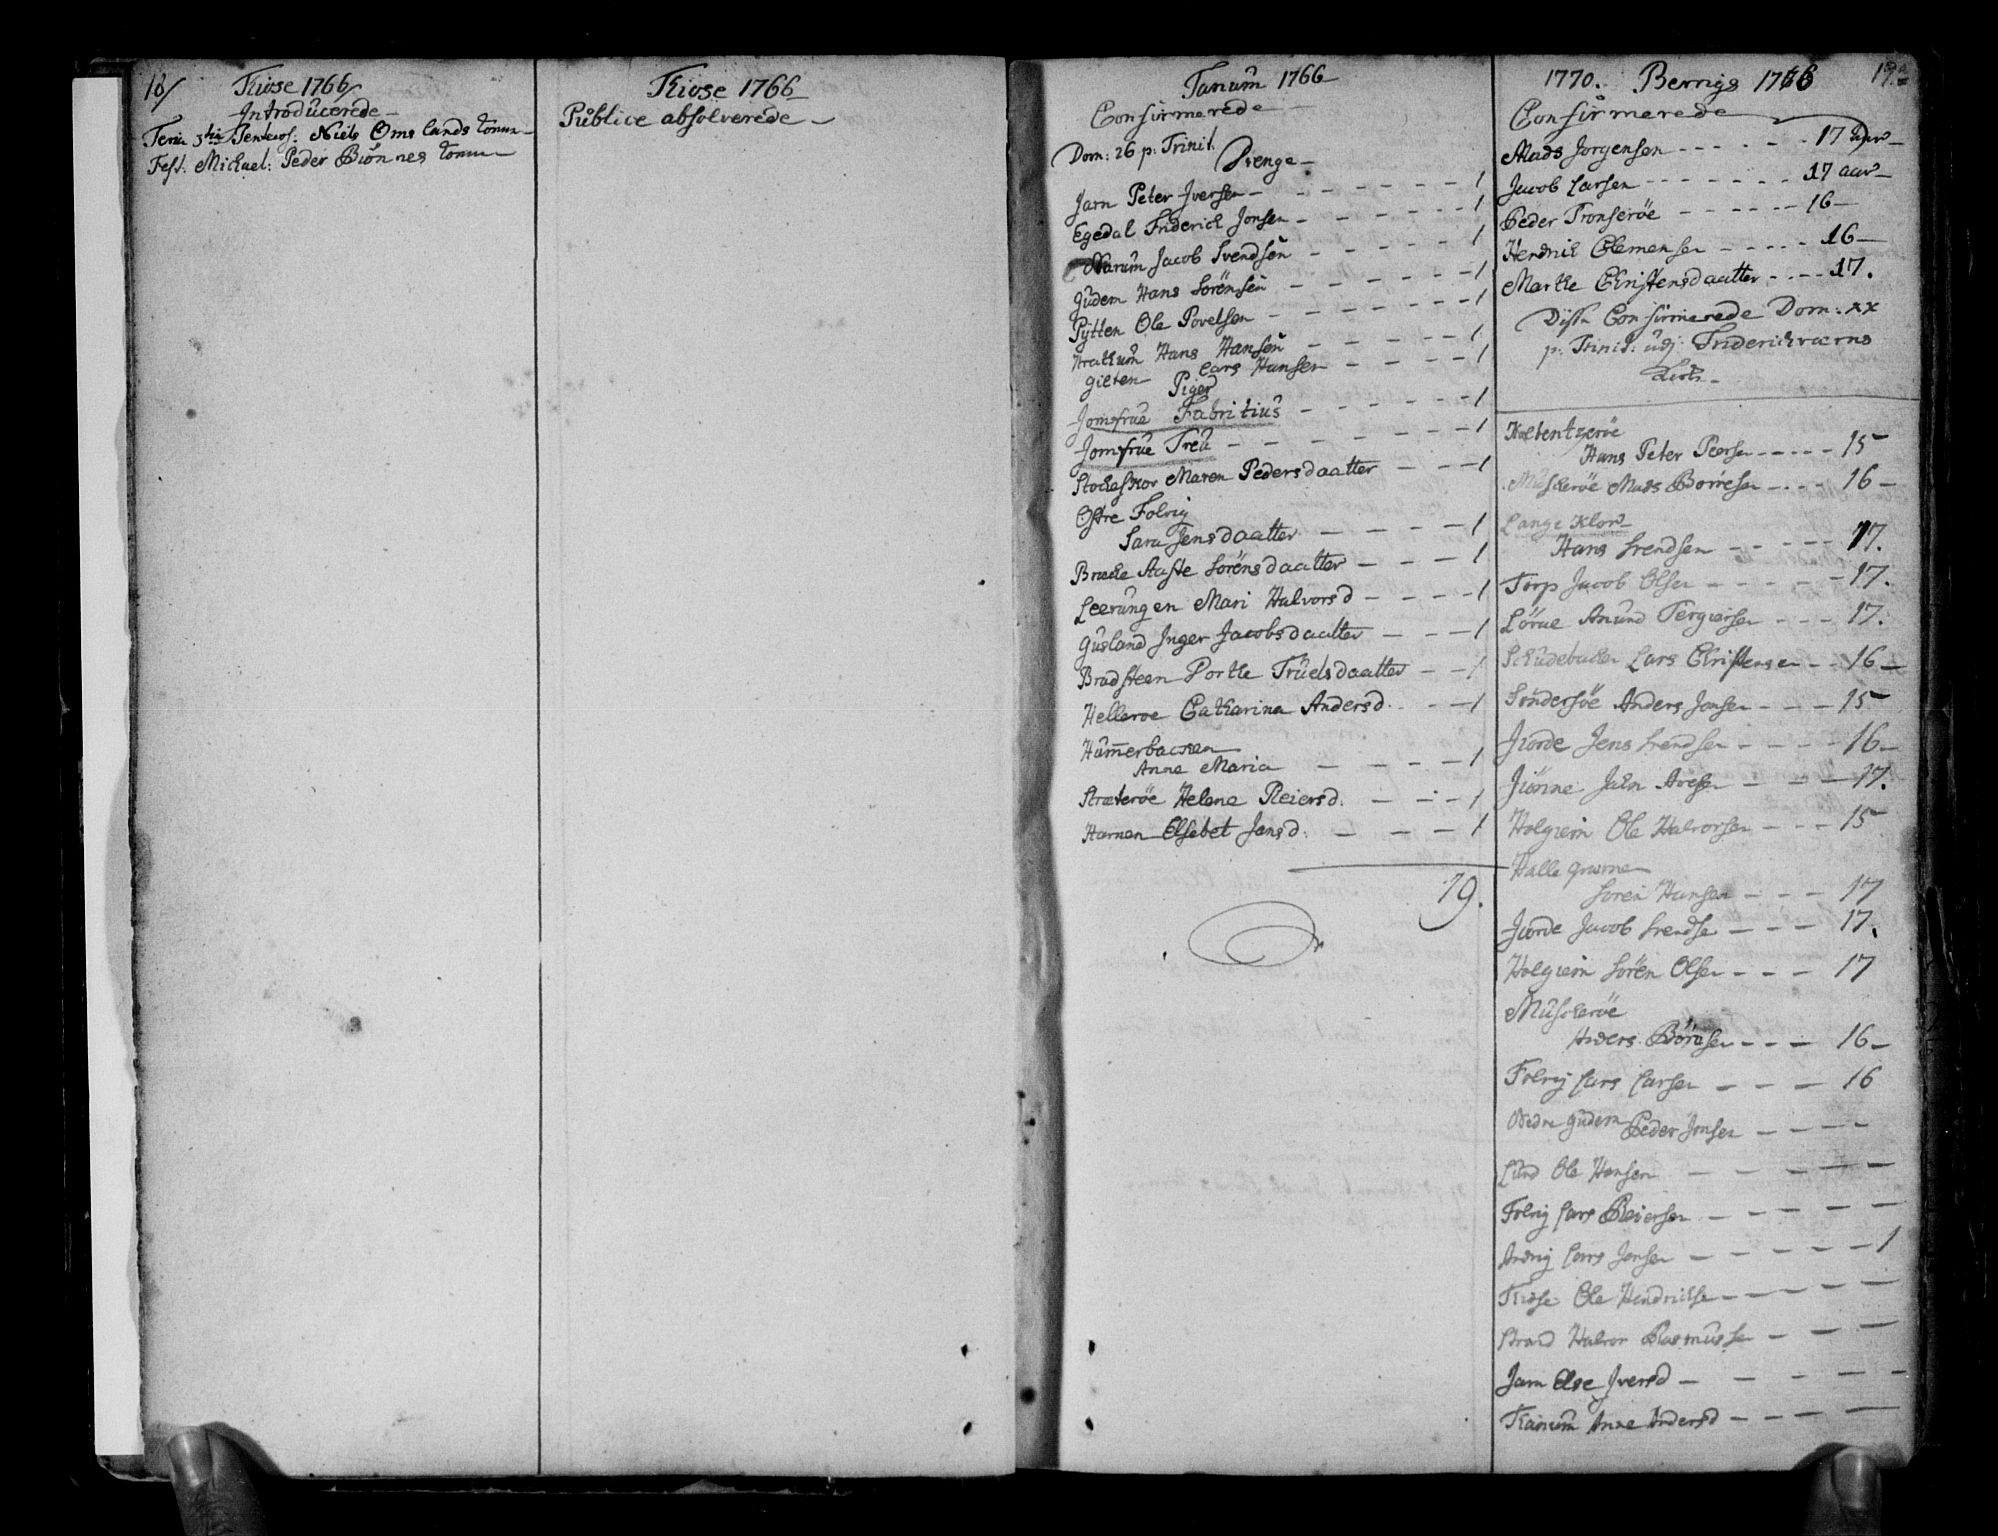 18/
Kiose 1766
Introducerede
Feria 3tia Pentecos: Niels Omslands Konne
Fest. Michael: Peder Biönnes Konne
Kiose 1766
Publice absolverede
Tanum 1766
Confirmerede
Dom: 26 p: Trinit.
Drenge
Jarn Peter Iversen - - - - 1
Egedal Friderich Jonsen - - - - 1
Narum Jacob Svendsen - - - - 1
Gudem Hans Sörensen - - - - 1
Pytten Ole Povelsen - - - - 1
Hans Hansen - - - - 1
Lars Hansen - - - - 1
Piger
Jomfrue Fabritius - - - - 1
Jomfrue Treu - - - - 1
Maren Pedersdaatter - - - 1
Ostre Folvig
Sara Jensdaatter - - - 1
Brecke Aaste Sörensdaatter - - - 1
Leerungen Mari Halvorsd - - - 1
Gusland Inger Jacobsdaatter - - - 1
Bradsteen Dorthe Truelsdaatter - - 1
Helleroe Catharina Andersd. - - - 1
Hum̅erbacken
Anne Maria - - - - 1
Stræteröe Helene Reiersd. - - - 1
Hernen Elsebet Jansd: - - - 1
19.
1770. Bernigs 1766
19.
Confirmerede
Mads Jorgensen - - - - 17 aar
Jacob Larsen - - - - 17 aar
Peder Tronseröe - - - - 16
Hendrich Clemensen - - - - 16
Marthe Christensdaatter - - - 17.
Disse Confirmerede Dom: xx
p: Trinit: udj Friderichværns
Kirke
Hans Peter Peersen - - - - 15
Muskeröe Mads Borresen - - - 16
Lange Klov
Hans Svendsen - - - - 17.
Torp Jacob Olsen - - - - 17.
Lörue Anund Tergiersen - - - 17.
Schudebacken Lars Christensen - - 16
Sönderföe Anders Jonsen - - - 15
Jiorde Jens Svendsen - - - 16
Jiönne Jahn Aresen - - - 17.
Holgiein Ole Halvorsen - - - 15
Halle grærne
Soren Hansen - - - 17
Jiorde Jacob Svendse - - - 17.
Holgiein Sören Olsen - - - 17
Muskeröe
Anders Böresen - - - 16
Folvig Lars Larsen - - - 16
Nedre Gudem Peder Jonsen - - - -
Lund Ole Hansen - - - -
Folvig Lars Reiersen - - - -
Lars Jansen - - - - 1
Kiose Ole Hendrichse - - - -
Halvor Rasmussen - - -
Jarn Else Iversd - - - -
Anne Andersd - - - -